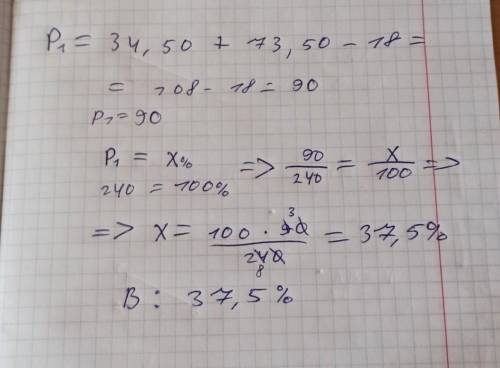 P₁ = 34,50 + 73,50 - 18 =
= 108 - 18 = 90
P₁ = 90
P₁ = x% => 90/240 = x/100 =>
240 = 100%
=> x = 100 · 90/240 = 37,5%
3
8
B: 37,5%